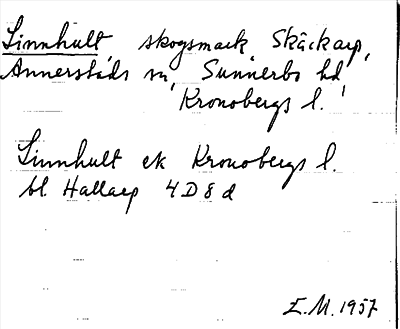 Linnhult, skogsmark, Skäckarp,
Annerstads sn, Sunnerbo hd,
Kronobergs l.
Linnhult ek Kronobergs l.
bl. Hallarp 4D8d
E.M. 1957